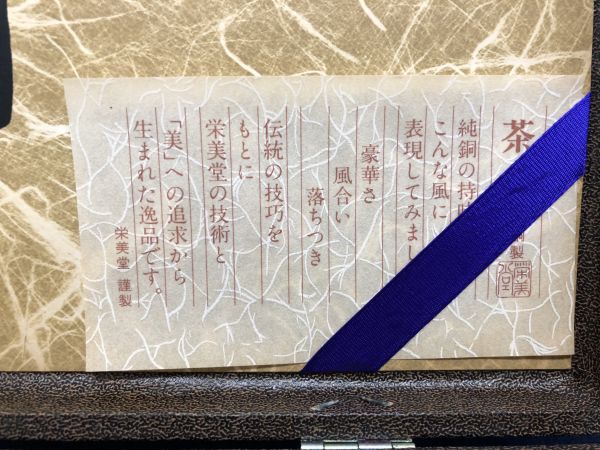 茶
純銅の持
こんな風に
表現してみまし
豪華さ
風合い
落ちつき
伝統の技巧を
もとに
栄美堂の技術と
「美」への追求から
生まれた逸品です。
栄美堂 謹製